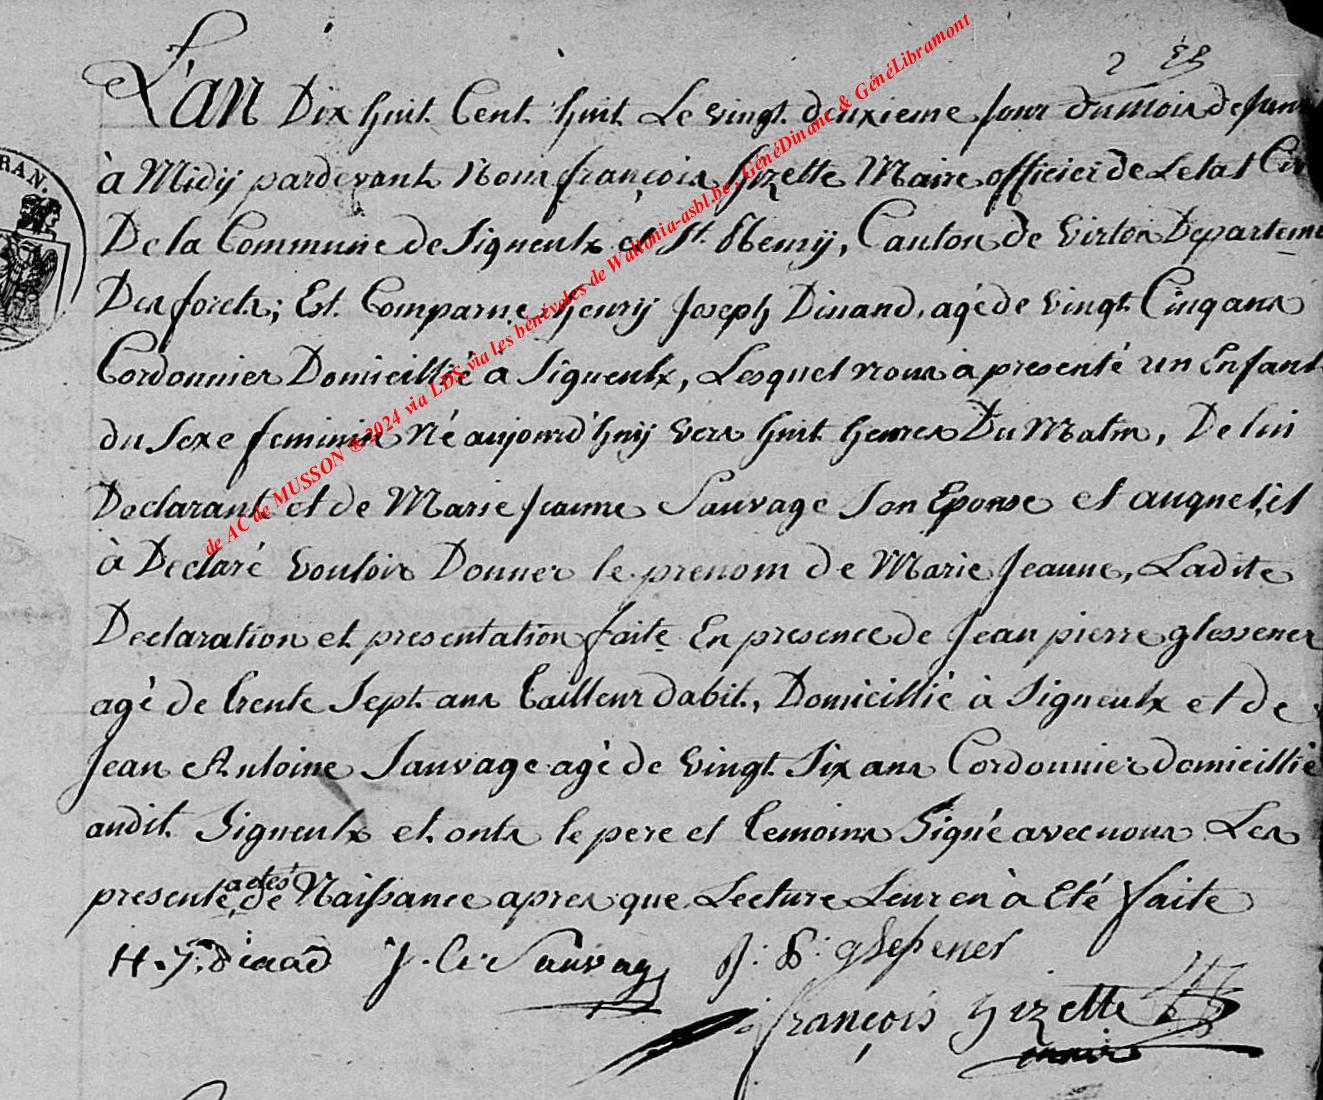 2 
L'an Dix huit Cent huit Le vingt deuxieme Jour du mois de
à Midij pardevant Nous françois Gizette Maire officier de Letat
De la Commune de Signeulx et St. Remij, Canton de Virton
Des forets; Est Comparue henrij Joseph Dinand, agé de vingt Cinq ans
Cordonnier Domicillié à Signeulx, Lesquel nous à presenté un Enfant
du Sexe feminin Né aujourd'huij vers huit heures Du Matin, De lui
Declarant et de Marie Jeanne Sauvage Son Epouse et auquel il
à Declaré vouloir Donner le prenom de Marie Jeanne, Ladite
Declaration et presentation faite En presence de Jean pierre glessener
agé de trente Sept ans tailleur dabit, Domicillié à Signeulx et de
Jean Antoine Sauvage agé de vingt Six ans Cordonnier domicillié
audit Signeulx et onts le pere et temoins Signé avec nous Les
presente actes de Naissance apres que Lecture Leur en à Eté faite
H. J. dinad J. a. Sauvage J. P. glessener
françois gizette
maire
RAN.
de AC de MUSSON ® 2024 via LDS via les bénévoles de Wallonia-asbl.be, GénéDinant & GénéLibramont